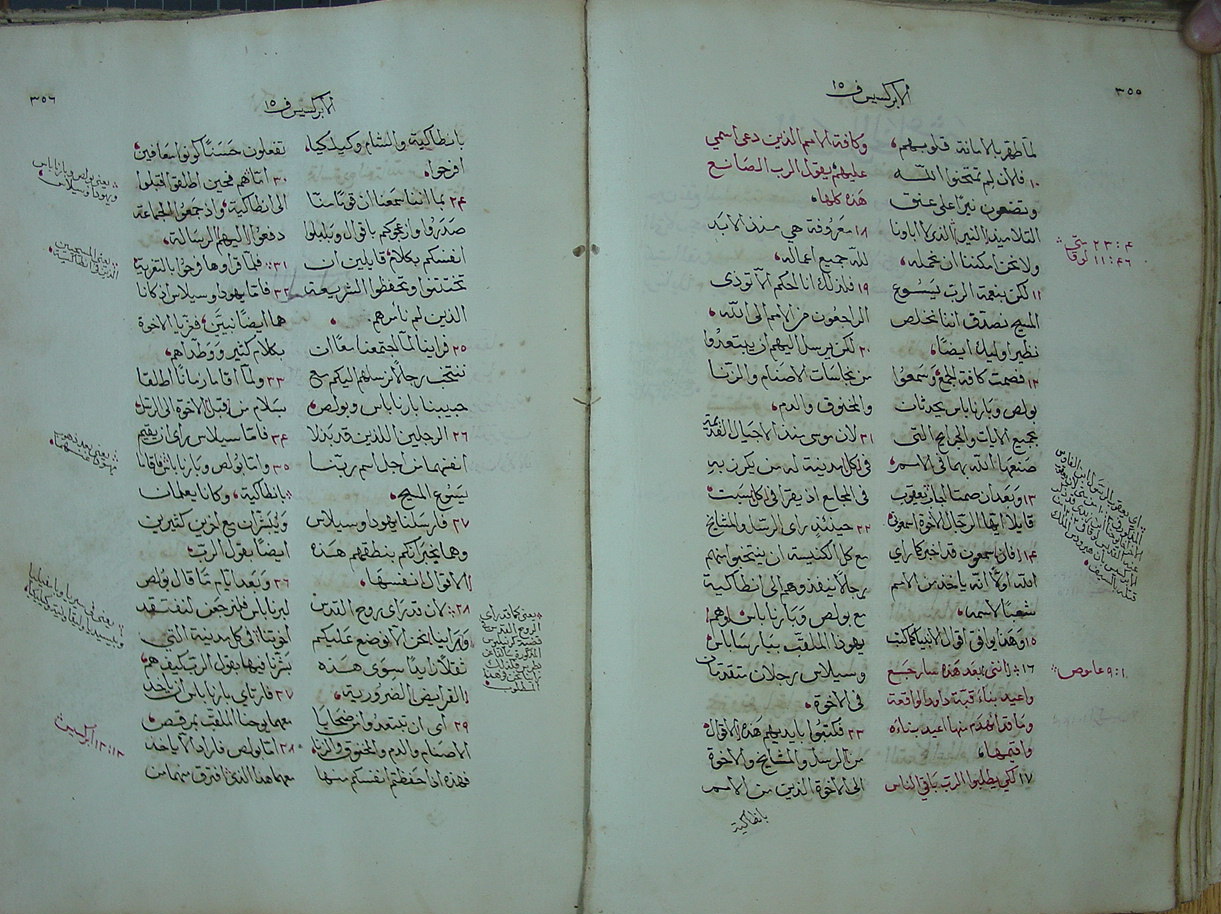 ٣٥٥
الابركسيس ف ١٥
لما طهر بالامانة قلوبهم.
١٠ فلان لم تمتحنوا الله
وتضعون نيرًا على عنق
التلاميذ النير الذي لا اباونا
ولا نحن امكننا ان نحمله.
١١ لكن بنعمة الرب يسوع
المسيح نصدق اننا نخلص
نظير اوليك ايضًا.
١٢ فصمت كافة الجمع وسمعوا
بولص وبارناباس يحدثان
بجميع الايات والجرايح التي
صنعها الله بهما في الامم.
١٣ وبعد ان صمتا اجاب يعقوب
قايلًا ايها الرجال الاخوة اسمعوني
١٤ فان سمعون قد اخبر كما راى
الله اولًا انه ياخذ من الامم
شعبًا لاسمه.
١٥ وهذا يوافق اقوال الانبيا كما كتب
١٦ انني بعد هذه سارجع
واعيد بناء قبة داود الواقعة
وما قد انهدم منها اعيد بناؤه
واقيمها.
١٧ لكي يطلبوا الرب باقي الناس
وكافة الامم الذين دعي اسمي
عليهم يقول الرب الصانع
هذه كلها.
١٨ معروفة هي منذ الابد
لله جميع اعماله.
١٩ فلذلك انا احكم الا توذى
الراجعون من الامم الى الله.
٢٠ لكن يرسل اليهم ان يبتعدوا
من نجاسات الاصنام والزنا
والمخنوق والدم.
٢١ لان موسى منذ الاجيال القديمة
في كل مدينة له من يكرز به
في المجامع اذ يقرا في كل سبت
٢٢ حينئذٍ راى الرسل والمشايخ
مع كل الكنيسة ان ينتخبوا منهم
رجالًا ينفذوهم الى انطاكية
مع بولص وبارناباس وهم
يهودا الملقب ببارساباس
وسيلاس رجلان متقدمان
في الاخوة.
٢٣ فكتبوا بايديهم هذه الاقوال
من الرسل والمشايخ والاخوة
الى الاخوة الذين من الامم
بانطاكية
٤ : ٢٣ متى
٤٦ : ١١ لوقا
١ : ٩ عاموص
٣٥٦
الابركسيس ف ١٥
بانطاكية والشام وكيليكيا.
افرحوا.
٢٤ بما اننا سمعنا ان قومًا منا
صدروا وازعجوكم باقوال وبلبلوا
انفسكم بكلام قايلين ان
تختتنوا وتحفظوا الشريعة
الذين لم نامرهم.
٢٥ فراينا لما اجتمعنا معًا ان
ننتخب رجالًا نرسلهم اليكم مع
حبيبينا بارناباس وبولص
٢٦ الرجلين اللذين قد بذلا
انفسهما من اجل اسم ربنا
يسوع المسيح.
٢٧ فارسلنا يهودا وسيلاس
وهما يخبرانكم بنطقهم هذه
الاقوال انفسها.
٢٨ لان قد راى روح القدس
وراينا نحن الا نوضع عليكم
ثقلًا زايدًا سوى هذه
الفرايض الضرورية.
٢٩ اي ان تبتعدوا من ضحايا
الاصنام والدم والمخنوق والزنا
فهذه اذا حفظتم انفسكم منها
تفعلون حسنًا كونوا معافين
٣٠ اما هم فحين اطلقوا اقبلوا
الى انطاكية واذ جمعوا الجماعة
دفعوا اليهم الرسالة.
٣١ فلما قراوها فرحوا بالتعزية
٣٢ فاما يهودا وسيلاس اذ كانا
هما ايضًا نبيين فعزيا الاخوة
بكلام كثير ووطداهم.
٣٣ ولما اقاما زمانًا اطلقا
بسلام من قبل الاخوة الى الرسل
٣٤ فاما سيلاس راى ان يقيم
٣٥ واما بولص وبارناباس فاقاما
بانطاكية وكانا يعلمان
ويبشران مع اخرين كثيرين
ايضًا بقول الرب.
٣٦ وبعد ايام ما قال بولص
لبرناباس فلنرجعن لنفتقد
اخوتنا في كل مدينة التي
بشرنا فيها بقول الرب كيف هم
٣٧ فارتاى بارناباس ان ياخذ
معهما يوحنا الملقب بمرقص.
٣٨ اما بولص فاراد الا ياخذ
معهما هذا الذي افترق منهما من
يعني بولص وبارناباس
ويهودا وسيلاس
١٣ : ١٣ ابركسيس